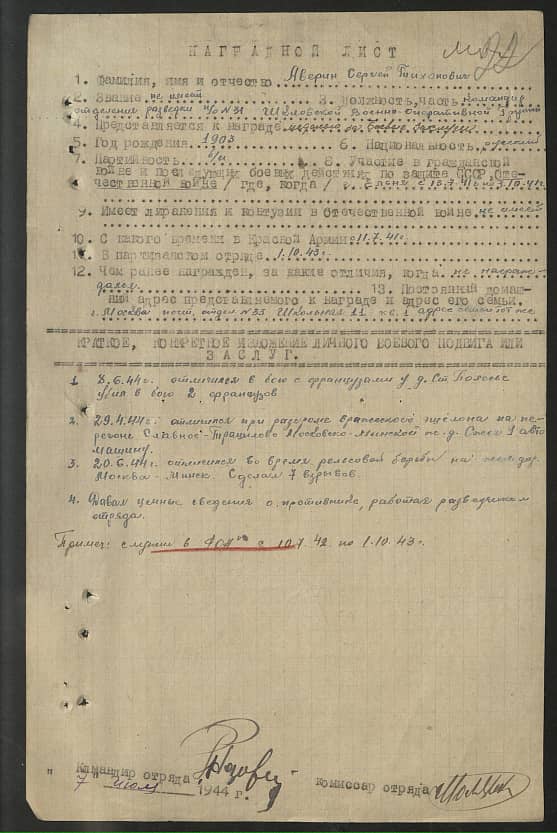 НАГРАДНОЙ ЛИСТ
1. Фамилия, имя и отчество Аверин Сергей Тихонович
2. Звание не имеет 3. Должность, часть командир
отделения разведки п/о №31 Шкловской Военно-Оперативной группы
4. Представляется к награде
5. Год рождения 1903 6. Национальность русский
7. Партийность б/п 8. Участие в гражданской
войне и последующих боевых действиях по защите СССР, Оте-
чественной войне /где, когда/ с 3.10.41г.
9. Имеет ли ранения и контузии в отечественной войне не имеет
10. С какого времени в Красной Армии 11.7.41г.
11. В партизанском отряде 1.10.43г.
12. Чем ранее награжден, за какие отличия, когда не награж-
дался. 13. Постоянный домаш-
ний адрес представляемого к награде и адрес его семьи.
г. Москва почт. отдел №33 Школьная 11 кв. 1 адрес семьи тот же.
КРАТКОЕ, КОНКРЕТНОЕ ИЗЛОЖЕНИЕ ЛИЧНОГО БОЕВОГО ПОДВИГА ИЛИ
ЗАСЛУГ.
1. 8.6.44г. отличился в бою с французами у д. Ст.
Убил в бою 2 французов
2. 29.4.44г. отличился при разгроме вражеского эшелона на пе-
регоне Славное-Троцилово Московско-Минской ж.д. Сжег 1 авто
машину.
3. 20.6.44г. отличился во время рельсовой борьбы на жел. дор.
Москва - Минск. Сделал 7 взрывов.
4. Давал ценные сведения о противнике, работая разведчиком
отряда.
Примеч: служил в с 10.7.42 по 1.10.43г.
Командир отряда
"7" июля 1944 г.
Комиссар отряда